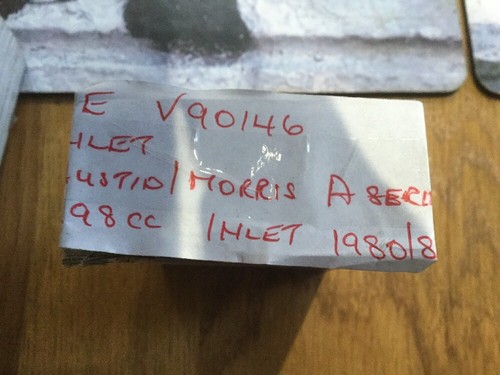 E V90146
NLET
USTIN/MORRIS A SERI
98CC INLET 1980/8